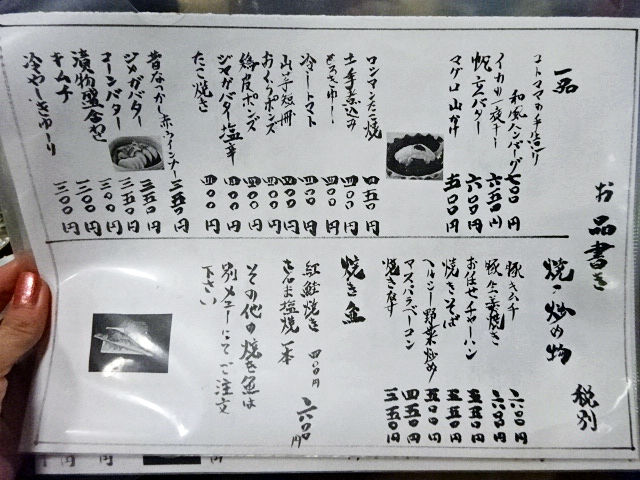 お品書き
税別
一品
和風ハンバーグ 七〇〇円
イカの一夜干し 六五〇円
帆立バター 六〇〇円
マグロ山かけ 五〇〇円
ロンマンたこ焼 四五〇円
土手煮込み 四〇〇円
四〇〇円
冷しトマト 四〇〇円
山芋短冊 四〇〇円
おくらポンズ 四〇〇円
鶏皮ポンズ 四〇〇円
ジャガバター塩辛 四〇〇円
たこ焼き 四〇〇円
昔なつかし赤ウインナー 三五〇円
ジャガバター 三五〇円
コーンバター 三〇〇円
漬物盛合わせ 三〇〇円
キムチ 三〇〇円
冷やしきゅーり 三〇〇円
焼・炒め物
豚キムチ 六〇〇円
豚生姜焼き 六〇〇円
お任せチャーハン 五五〇円
焼きそば 五五〇円
ヘルシー野菜炒め 五〇〇円
アスパラベーコン 四五〇円
焼きなす 三五〇円
焼き魚
紅鮭焼き 四〇〇円
さんま塩焼 一本 六〇〇円
その他の焼き魚は
別メニューにてご注文
下さい